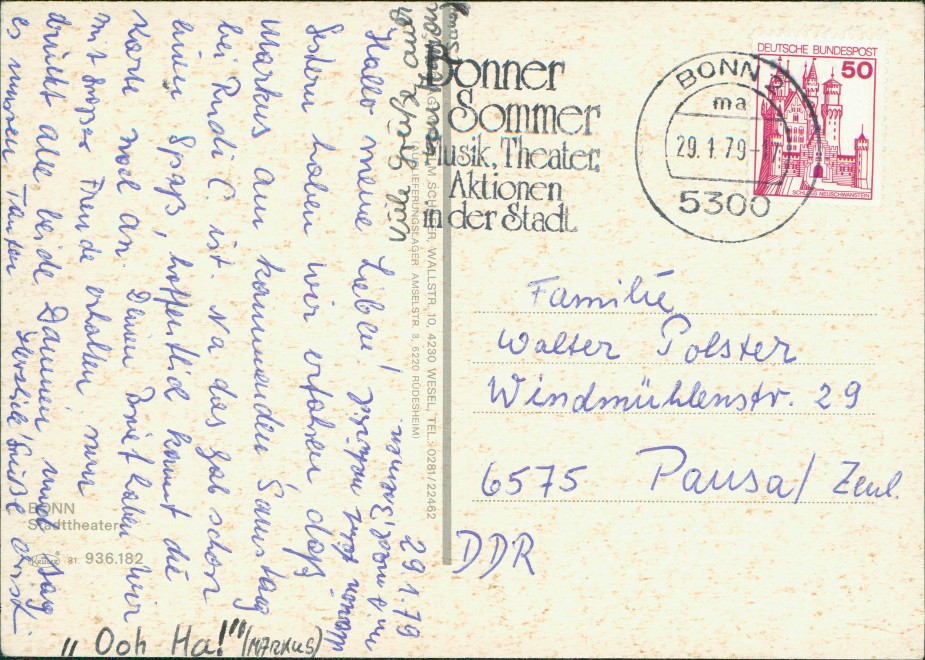 29.1.79
Hallo meine Lieben!
Gestern haben wir erfahren, daß
Markus am kommenden Samstag
bei Rudi C. ist. Na das gab schon
einen Spaß, hoffentlich kommt die
Karte noch an. Deinen Brief haben wir
mit großer Freude erhalten, nun
drückt alle beide Daumen und sag
es müssen Tanten
Herzliche Grüße
"Ooh Ha!" (MARKUS)
Bonner
Sommer
Musik, Theater,
Aktionen
in der Stadt
BONN 2
ma
29.1.79-17
5300
DEUTSCHE BUNDESPOST
50
SCHLOSS NEUSCHWANSTEIN
WALLSTR. 10, 4230 WESEL, TEL.: 0281/22462
AUSLIEFERUNGSLAGER AMSELSTR. 3, 6220 RÜDESHEIM
BONN
Stadttheater
81. 936.182
Familie
Walter Polster
Windmühlenstr. 29
6575 Pausa/Zeul.
DDR